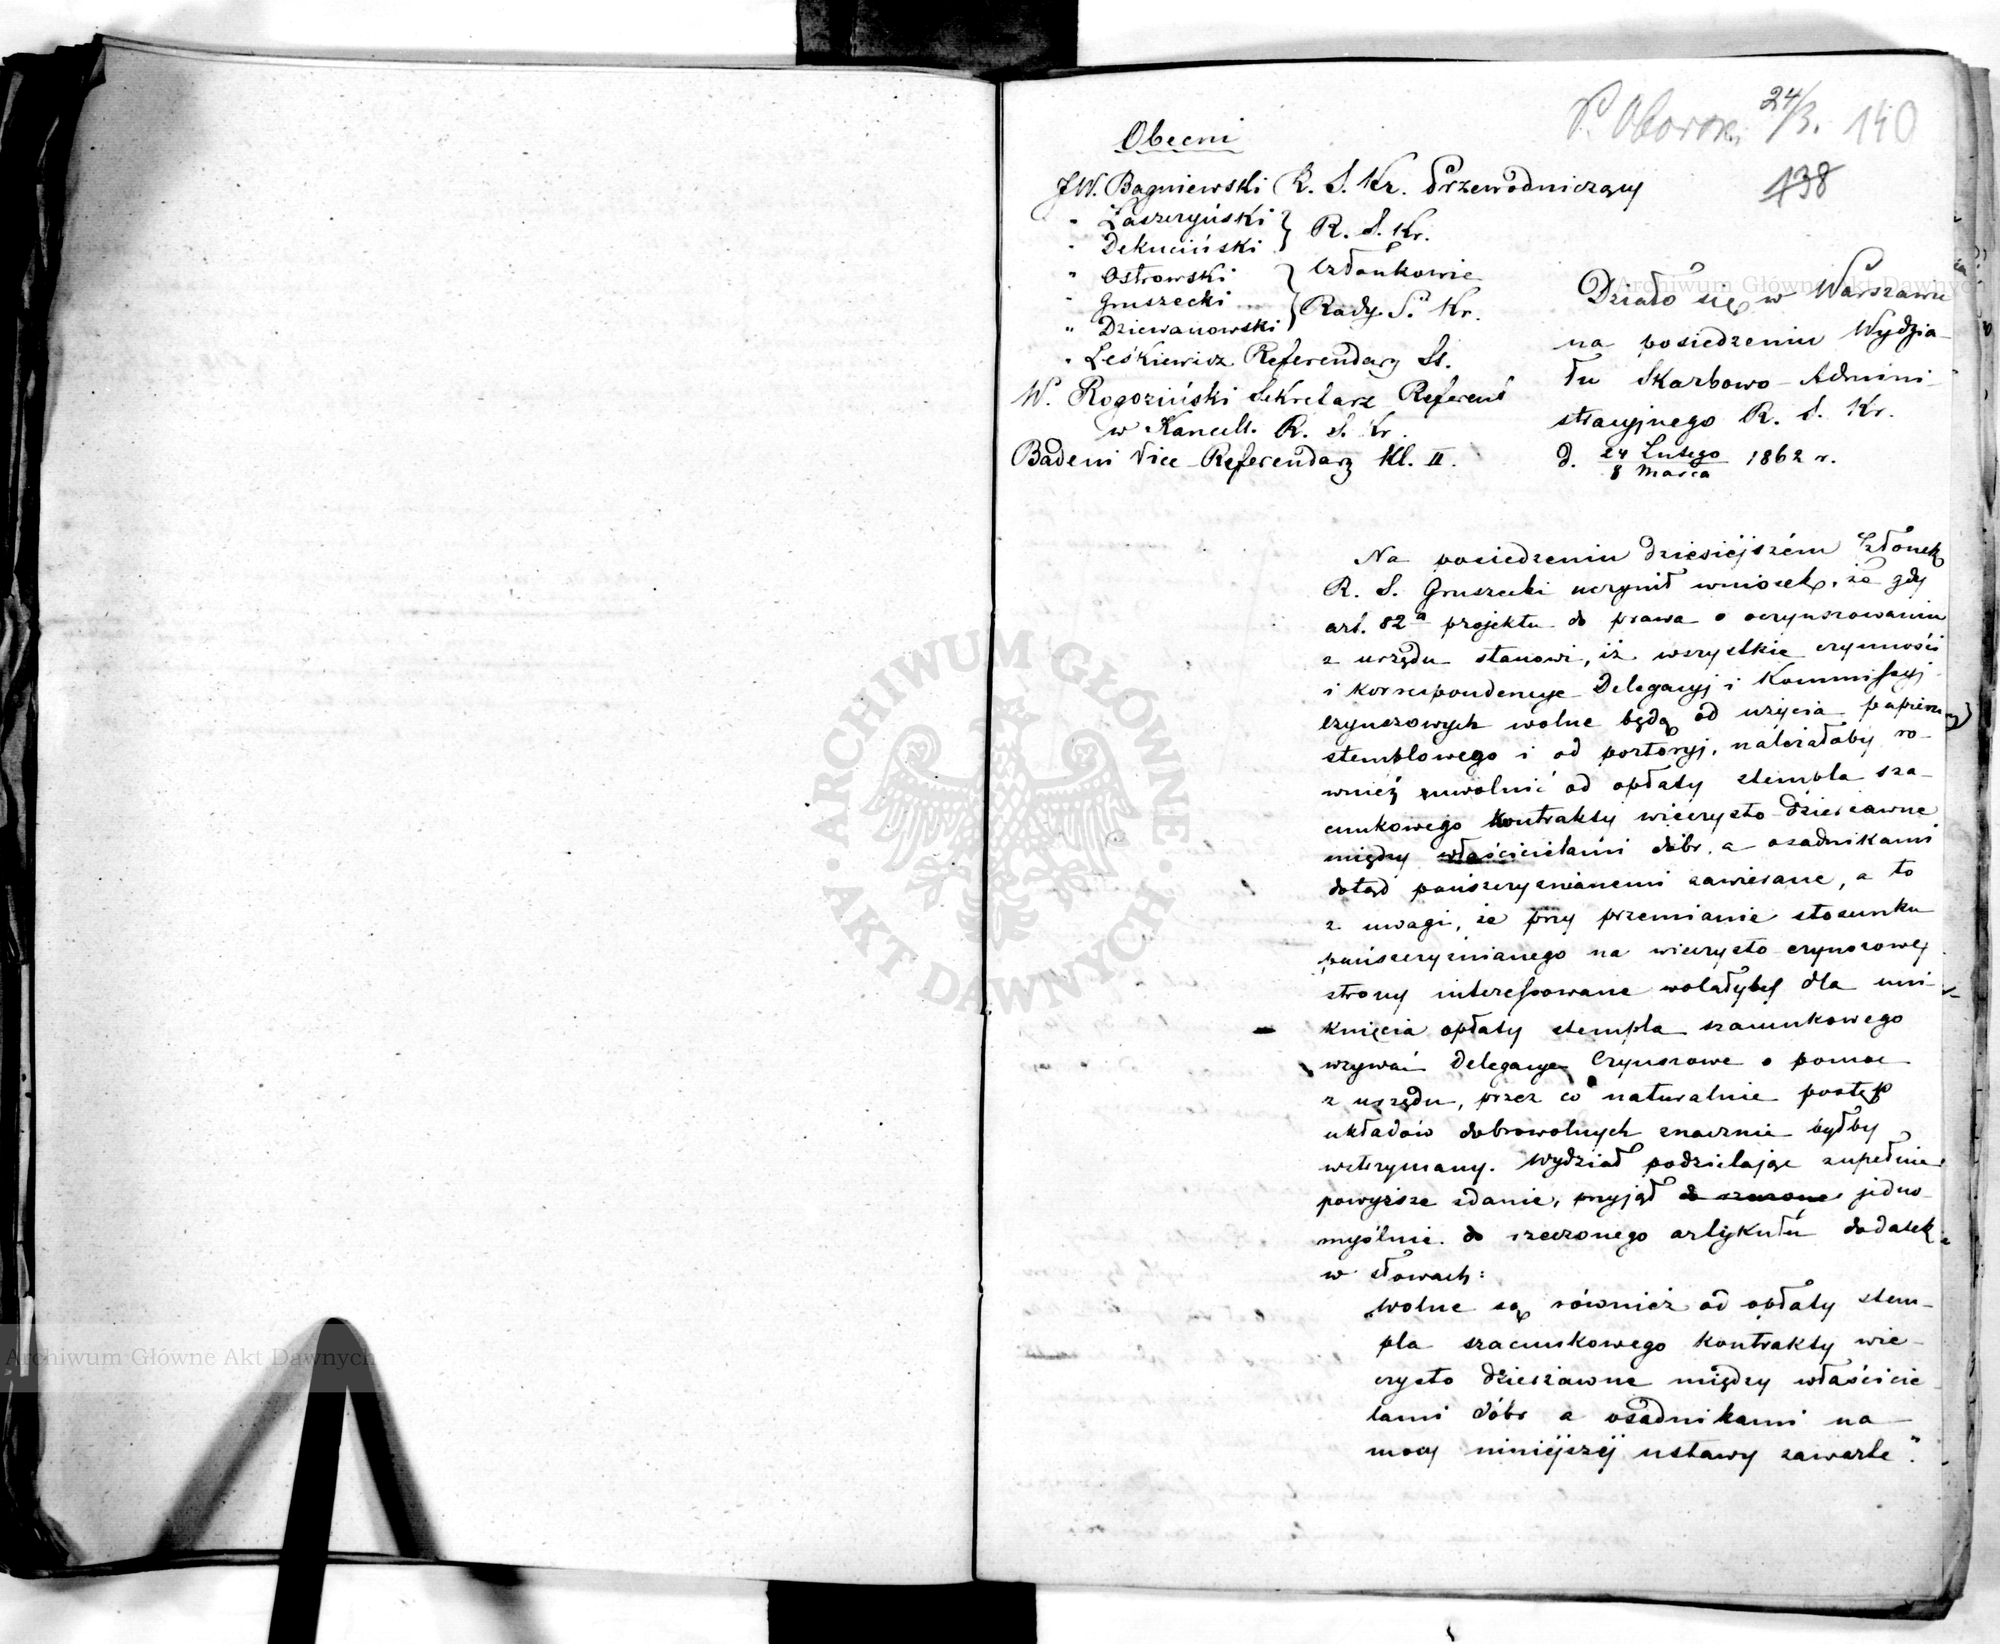 24/3. 140
438
Obecni
JW. Bagniewski R. S. Kr. Przewodniczący
" Łaszczyński } R. S. Kr.
" Dekuciński
" Ostrowski } Członkowie
" Gruszecki } Rady S. Kr.
" Dziewanowski
" Leśkiewicz Referendarz St.
W. Rogoziński Sekretarz Referent
w Kancell. R. S. Kr.
Badeni Vice-Referendarz Kl. II.
Działo się w Warszawie
na posiedzeniu Wydzia-
łu Skarbowo-Admini-
stracyjnego R. S. Kr.
d. 24 Lutego / 8 Marca 1862 r.
Na posiedzeniu dzisiéjszém Członek
R. S. Gruszecki uczynił wniosek, że gdy
art. 82a projektu do prawa o oczynszowaniu
z urzędu stanowi, iż wszystkie czynności
i korrespondencye Delegacyj i Kommissyj
czynszowych wolne będą od użycia papieru
stemplowego i od portoryj, należałoby ró-
wnież uwolnić od opłaty stempla sza-
cunkowego kontrakty wieczysto-dzierżawne
między właścicielami dóbr, a osadnikami
dotąd pańszczyźnianemi zawierane, a to
z uwagi, że przy przemianie stosunku
pańszczyźnianego na wieczysto-czynszowy
strony interessowane wolałyby dla uni-
knięcia opłaty stempla szacunkowego
wzywać Delegacye Czynszowe o pomoc
z urzędu, przez co naturalnie postęp
układów dobrowolnych znacznie byłby
wstrzymany. Wydział podzielając zupełnie
powyższe zdanie, przyjął jedno-
myślnie do rzeczonego artykułu dodatek
w słowach:
"wolne są również od opłaty stem-
pla szacunkowego kontrakty wie-
czysto dzierżawne między właścicie-
lami dóbr a osadnikami na
mocy niniéjszéj ustawy zawarte".
ARCHIWUM GŁÓWNE
AKT DAWNYCH
Archiwum Główne Akt Dawnych
Archiwum Główne Akt Dawnych